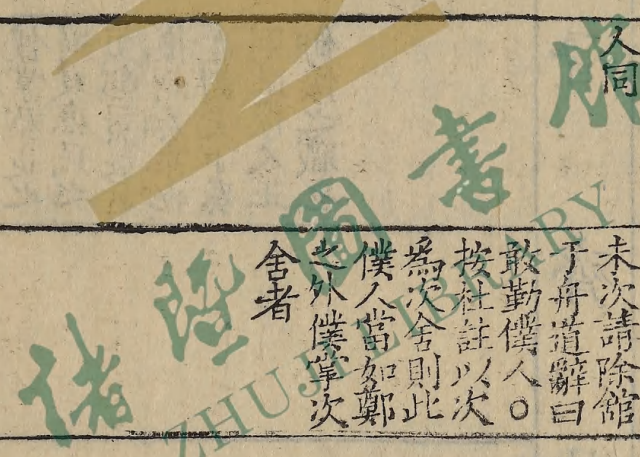 人同
未次請除館
于舟道辭曰
敢勤僕人○
按杜註以次
為次舍則此
僕人當如鄭
之外僕掌次
舍者
諸暨圖書館
ZHUJI LIBRARY